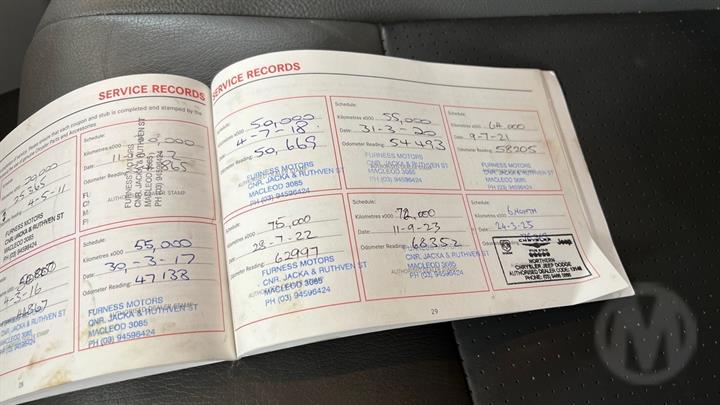 SERVICE RECORDS
ensure that each coupon and stub is completed and stamped by the
Genuine Chrysler Parts and Accessories.
20,000
25365
4-5-11
FURNESS MOTORS
CNR. JACKA & RUTHVEN ST
MACLEOD 3085
PH (03) 94596424
Schedule:
Kilometres x000
Date:
Odometer Reading:
FURNESS MOTORS
CNR. JACKA & RUTHVEN ST
MACLEOD 3085
PH (03) 94596424
4-3-16
44867
FURNESS MOTORS
CNR. JACKA & RUTHVEN ST
MACLEOD 3085
PH (03) 94596424
Schedule:
Kilometres x000 55,000
Date: 30-3-17
Odometer Reading: 47138
FURNESS MOTORS
CNR. JACKA & RUTHVEN ST
MACLEOD 3085
PH (03) 94596424
28
SERVICE RECORDS
Schedule:
Kilometres x000 50,000
Date: 4-7-18
Odometer Reading: 50,669
FURNESS MOTORS
CNR. JACKA & RUTHVEN ST
MACLEOD 3085
PH (03) 94596424
Schedule:
Kilometres x000 55,000
Date: 31-3-20
Odometer Reading: 54493
FURNESS MOTORS
CNR. JACKA & RUTHVEN ST
MACLEOD 3085
PH (03) 94596424
Schedule:
Kilometres x000 64,000
Date: 9-7-21
Odometer Reading: 58205
FURNESS MOTORS
CNR. JACKA & RUTHVEN ST
MACLEOD 3085
PH (03) 94596424
Schedule:
Kilometres x000 75,000
Date: 28-7-22
Odometer Reading: 62997
FURNESS MOTORS
CNR. JACKA & RUTHVEN ST
MACLEOD 3085
PH (03) 94596424
Schedule:
Kilometres x000
Date: 11-9-23
Odometer Reading: 68352
FURNESS MOTORS
CNR. JACKA & RUTHVEN ST
MACLEOD 3085
PH (03) 94596424
Schedule:
Kilometres x000 6 MONTH
Date: 24-3-25
CHRYSLER
Jeep
NORTHERN
CHRYSLER JEEP DODGE
AUTHORISED DEALER CODE:
29
M